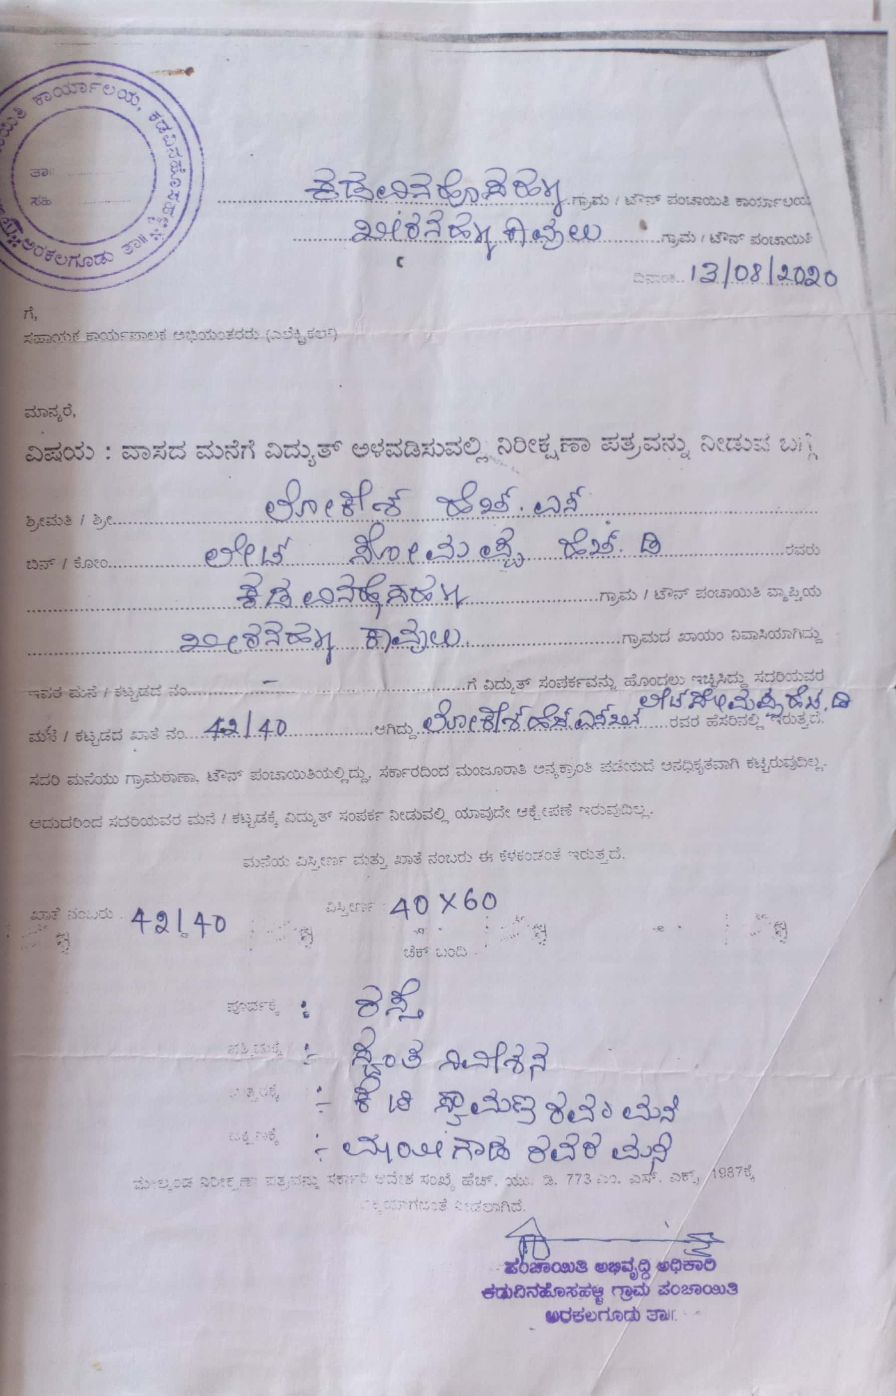 ಕಾರ್ಯಾಲಯ, ಕಡವಿನಹೊಸಹಳ್ಳಿ
ತಾ॥
ಸಹಿ
ಅರಕಲಗೂಡು ತಾ॥
ಕಡವಿನಹೊಸಹಳ್ಳಿ ಗ್ರಾಮ / ಟೌನ್ ಪಂಚಾಯಿತಿ ಕಾರ್ಯಾಲಯ
ಕಾವಲು ಗ್ರಾಮ / ಟೌನ್ ಪಂಚಾಯಿತಿ
ದಿನಾಂಕ 13/08/2020
ಗೆ,
ಸಹಾಯಕ ಕಾರ್ಯಪಾಲಕ ಅಭಿಯಂತರರು (ಎಲೆಕ್ಟ್ರಿಕಲ್)
ಮಾನ್ಯರೆ,
ವಿಷಯ : ವಾಸದ ಮನೆಗೆ ವಿದ್ಯುತ್ ಅಳವಡಿಸುವಲ್ಲಿ ನಿರೀಕ್ಷಣಾ ಪತ್ರವನ್ನು ನೀಡುವ ಬಗ್ಗೆ
ಶ್ರೀಮತಿ / ಶ್ರೀ ಲೋಕೇಶ ಹೆಚ್. ಎಸ್
ಬಿನ್ / ಕೋಂ ಲೇಟ್ ಸೋಮಪ್ಪ ಹೆಚ್. ಡಿ ರವರು
ಕಡವಿನಹೊಸಹಳ್ಳಿ ಗ್ರಾಮ / ಟೌನ್ ಪಂಚಾಯಿತಿ ವ್ಯಾಪ್ತಿಯ
ಕಾವಲು ಗ್ರಾಮದ ಖಾಯಂ ನಿವಾಸಿಯಾಗಿದ್ದು
ಇವರ ಮನೆ / ಕಟ್ಟಡದ ನಂ. - ಗೆ ವಿದ್ಯುತ್ ಸಂಪರ್ಕವನ್ನು ಹೊಂದಲು ಇಚ್ಛಿಸಿದ್ದು ಸದರಿಯವರ
ಮನೆ / ಕಟ್ಟಡದ ಖಾತೆ ನಂ. 42/40 ಆಗಿದ್ದು ಲೋಕೇಶ ಹೆಚ್.ಎಸ್ ಬಿನ್ ಲೇಟ್ ಸೋಮಪ್ಪ ಹೆಚ್. ಡಿ ರವರ ಹೆಸರಿನಲ್ಲಿ ಇರುತ್ತದೆ.
ಸದರಿ ಮನೆಯು ಗ್ರಾಮಠಾಣಾ, ಟೌನ್ ಪಂಚಾಯಿತಿಯಲ್ಲಿದ್ದು, ಸರ್ಕಾರದಿಂದ ಮಂಜೂರಾತಿ ಅನ್ಯಕ್ರಾಂತಿ ಪಡೆಯದೆ ಅನಧಿಕೃತವಾಗಿ ಕಟ್ಟಿರುವುದಿಲ್ಲ.
ಆದುದರಿಂದ ಸದರಿಯವರ ಮನೆ / ಕಟ್ಟಡಕ್ಕೆ ವಿದ್ಯುತ್ ಸಂಪರ್ಕ ನೀಡುವಲ್ಲಿ ಯಾವುದೇ ಆಕ್ಷೇಪಣೆ ಇರುವುದಿಲ್ಲ.
ಮನೆಯ ವಿಸ್ತೀರ್ಣ ಮತ್ತು ಖಾತೆ ನಂಬರು ಈ ಕೆಳಕಂಡಂತೆ ಇರುತ್ತದೆ.
ಖಾತೆ ನಂಬರು : 42/40 ವಿಸ್ತೀರ್ಣ : 40 X 60
ಚೆಕ್ ಬಂದಿ
ಪೂರ್ವಕ್ಕೆ : ರಸ್ತೆ
ಪಶ್ಚಿಮಕ್ಕೆ :- ಸ್ವಂತ ನಿವೇಶನ
ಉತ್ತರಕ್ಕೆ :- ರವರ ಮನೆ
ದಕ್ಷಿಣಕ್ಕೆ :- ರವರ ಮನೆ
ಮೇಲ್ಕಂಡ ನಿರೀಕ್ಷಣಾ ಪತ್ರವನ್ನು ಸರ್ಕಾರಿ ಆದೇಶ ಸಂಖ್ಯೆ ಹೆಚ್. ಯು. ಡಿ. 773 ಎಂ. ಎಸ್. ಎಕ್ಸ್. 1987ಕ್ಕೆ
ನೀಡಲಾಗಿದೆ.
ಪಂಚಾಯಿತಿ ಅಭಿವೃದ್ಧಿ ಅಧಿಕಾರಿ
ಕಡುವಿನಹೊಸಹಳ್ಳಿ ಗ್ರಾಮ ಪಂಚಾಯಿತಿ
ಅರಕಲಗೂಡು ತಾ॥